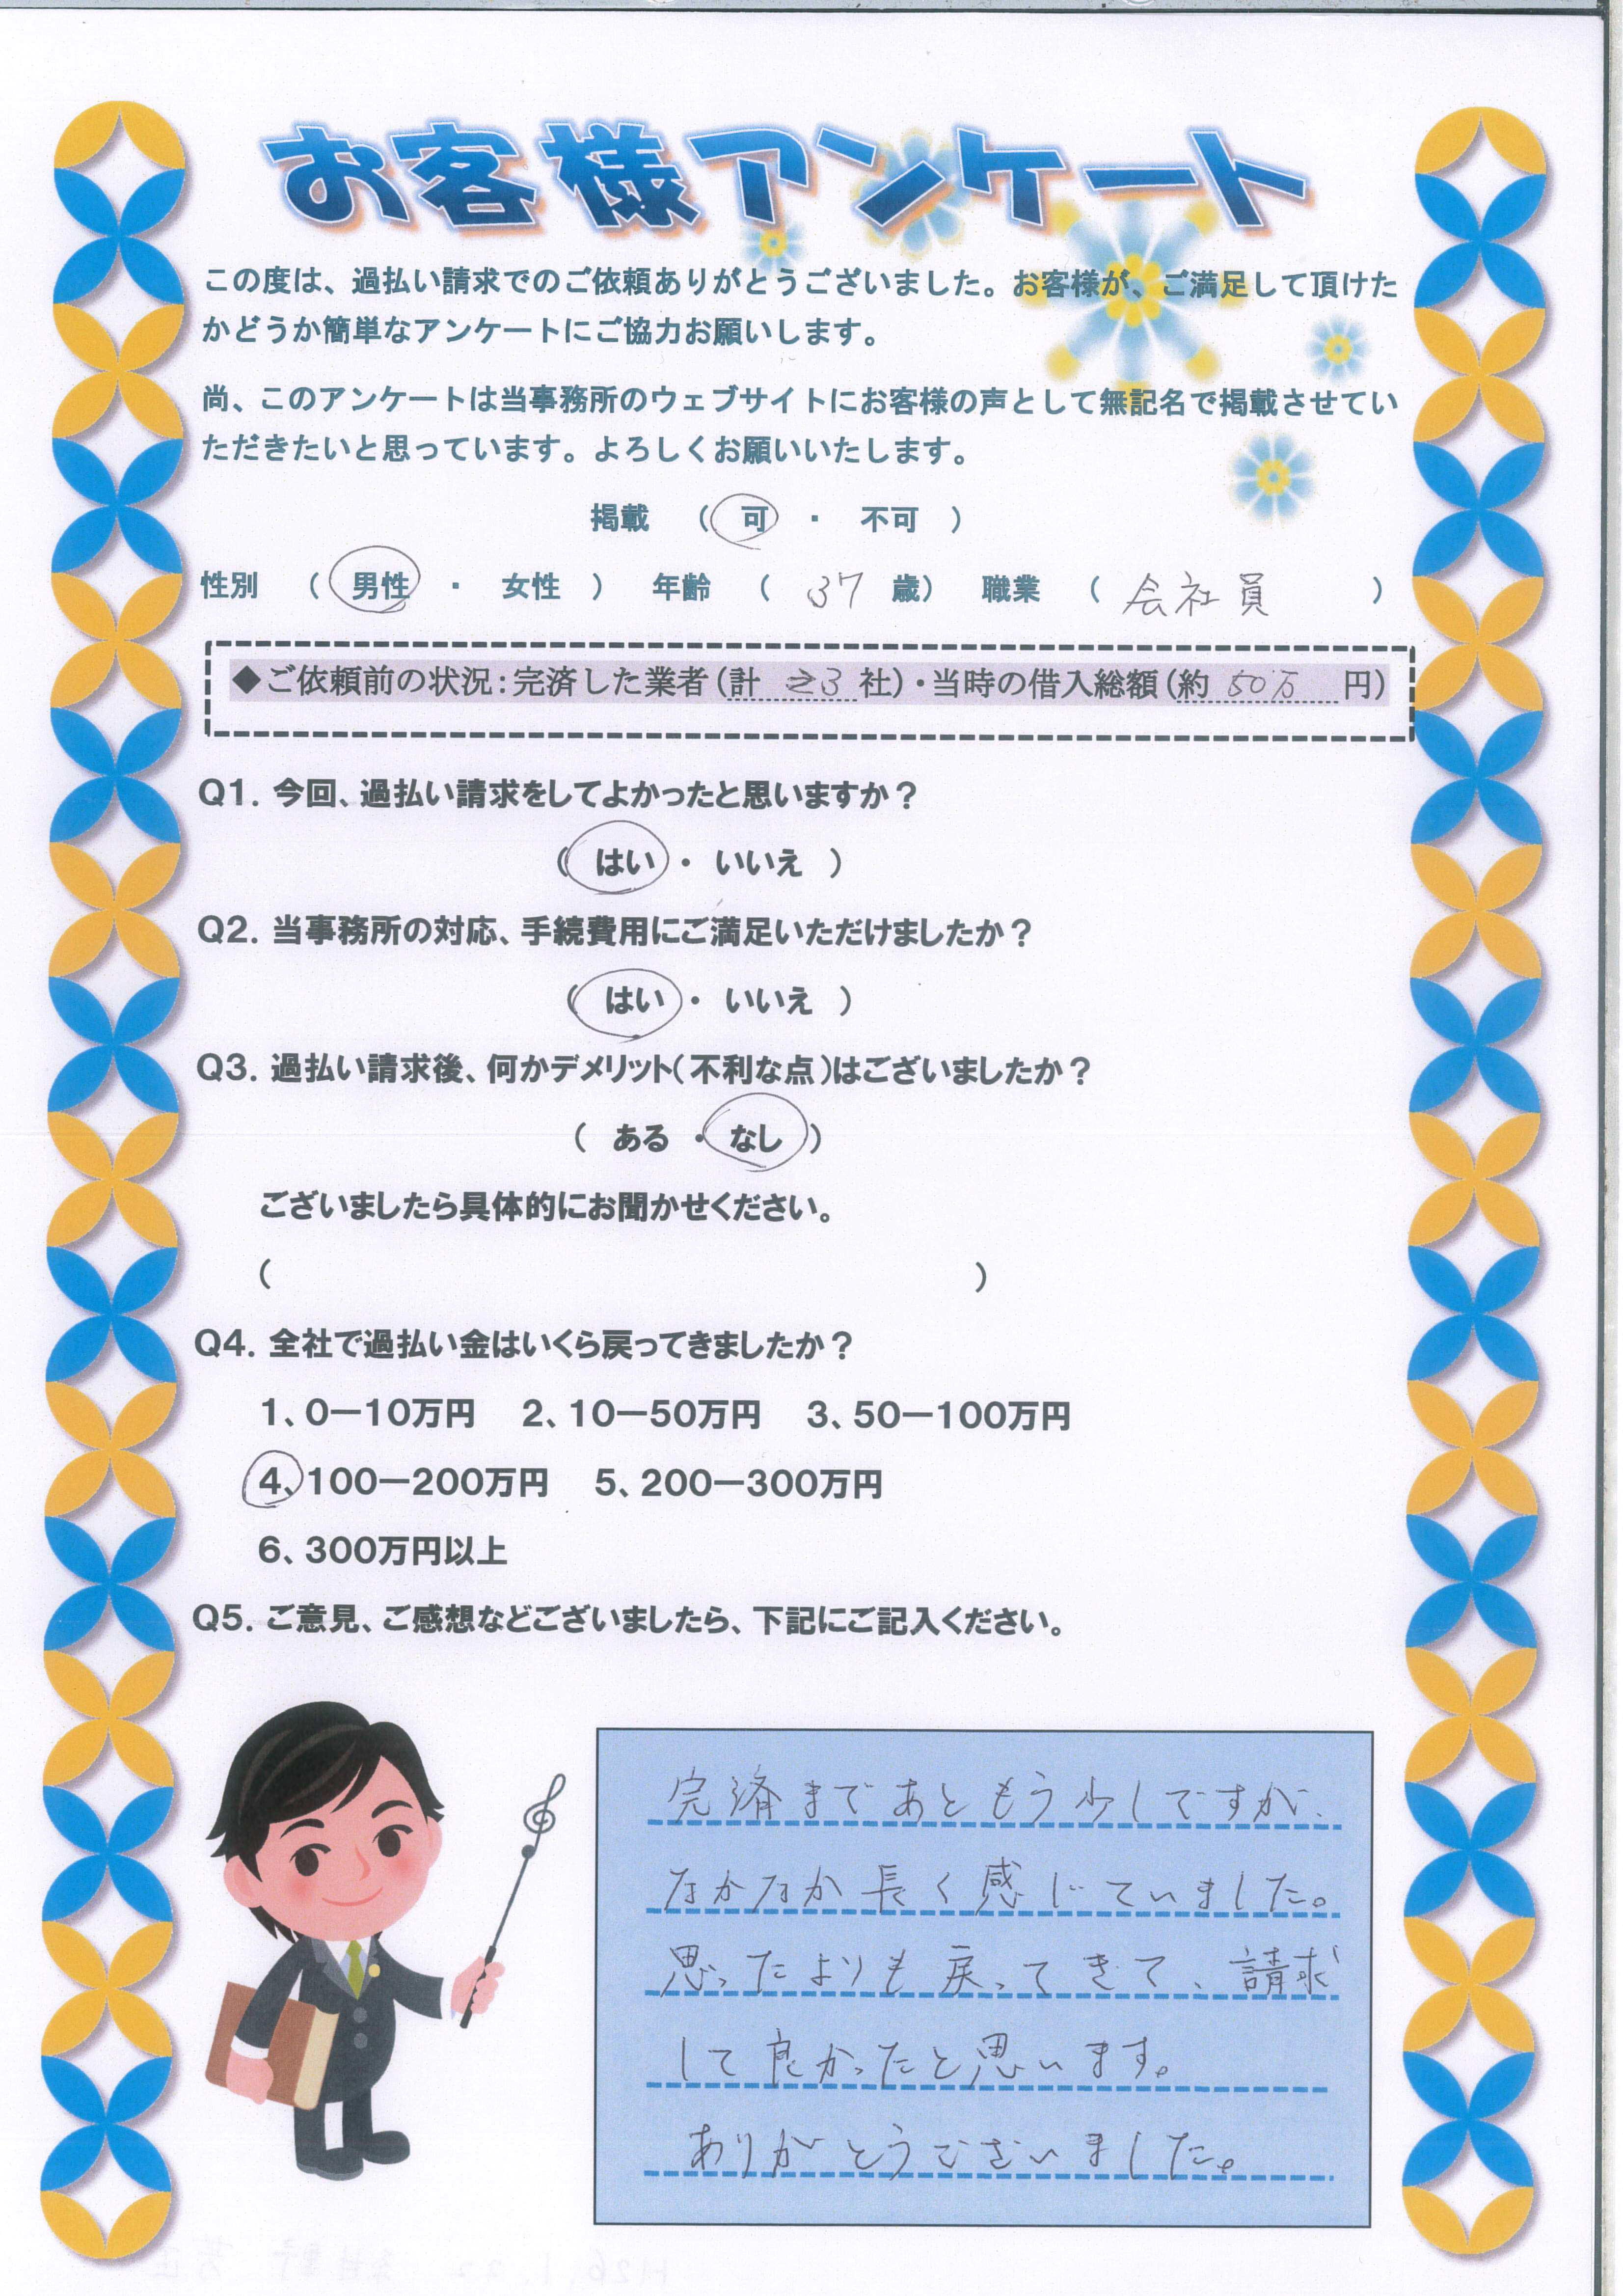 お客様アンケート
この度は、過払い請求でのご依頼ありがとうございました。お客様が、ご満足して頂けた
かどうか簡単なアンケートにご協力お願いします。
尚、このアンケートは当事務所のウェブサイトにお客様の声として無記名で掲載させてい
ただきたいと思っています。よろしくお願いいたします。
掲載 （ 可 ・ 不可 ）
性別 （ 男性 ・ 女性 ） 年齢 （ 37 歳） 職業 （ 会社員 ）
◆ご依頼前の状況：完済した業者（計 3 社）・当時の借入総額（約 50万 円）
Q1. 今回、過払い請求をしてよかったと思いますか？
（ はい ・ いいえ ）
Q2. 当事務所の対応、手続費用にご満足いただけましたか？
（ はい ・ いいえ ）
Q3. 過払い請求後、何かデメリット（不利な点）はございましたか？
（ ある ・ なし ）
ございましたら具体的にお聞かせください。
（ ）
Q4. 全社で過払い金はいくら戻ってきましたか？
1、0－10万円 2、10－50万円 3、50－100万円
4、100－200万円 5、200－300万円
6、300万円以上
Q5. ご意見、ご感想などございましたら、下記にご記入ください。
完済まであともう少しですが、
なかなか長く感じていました。
思ったよりも戻ってきて、請求
して良かったと思います。
ありがとうございました。